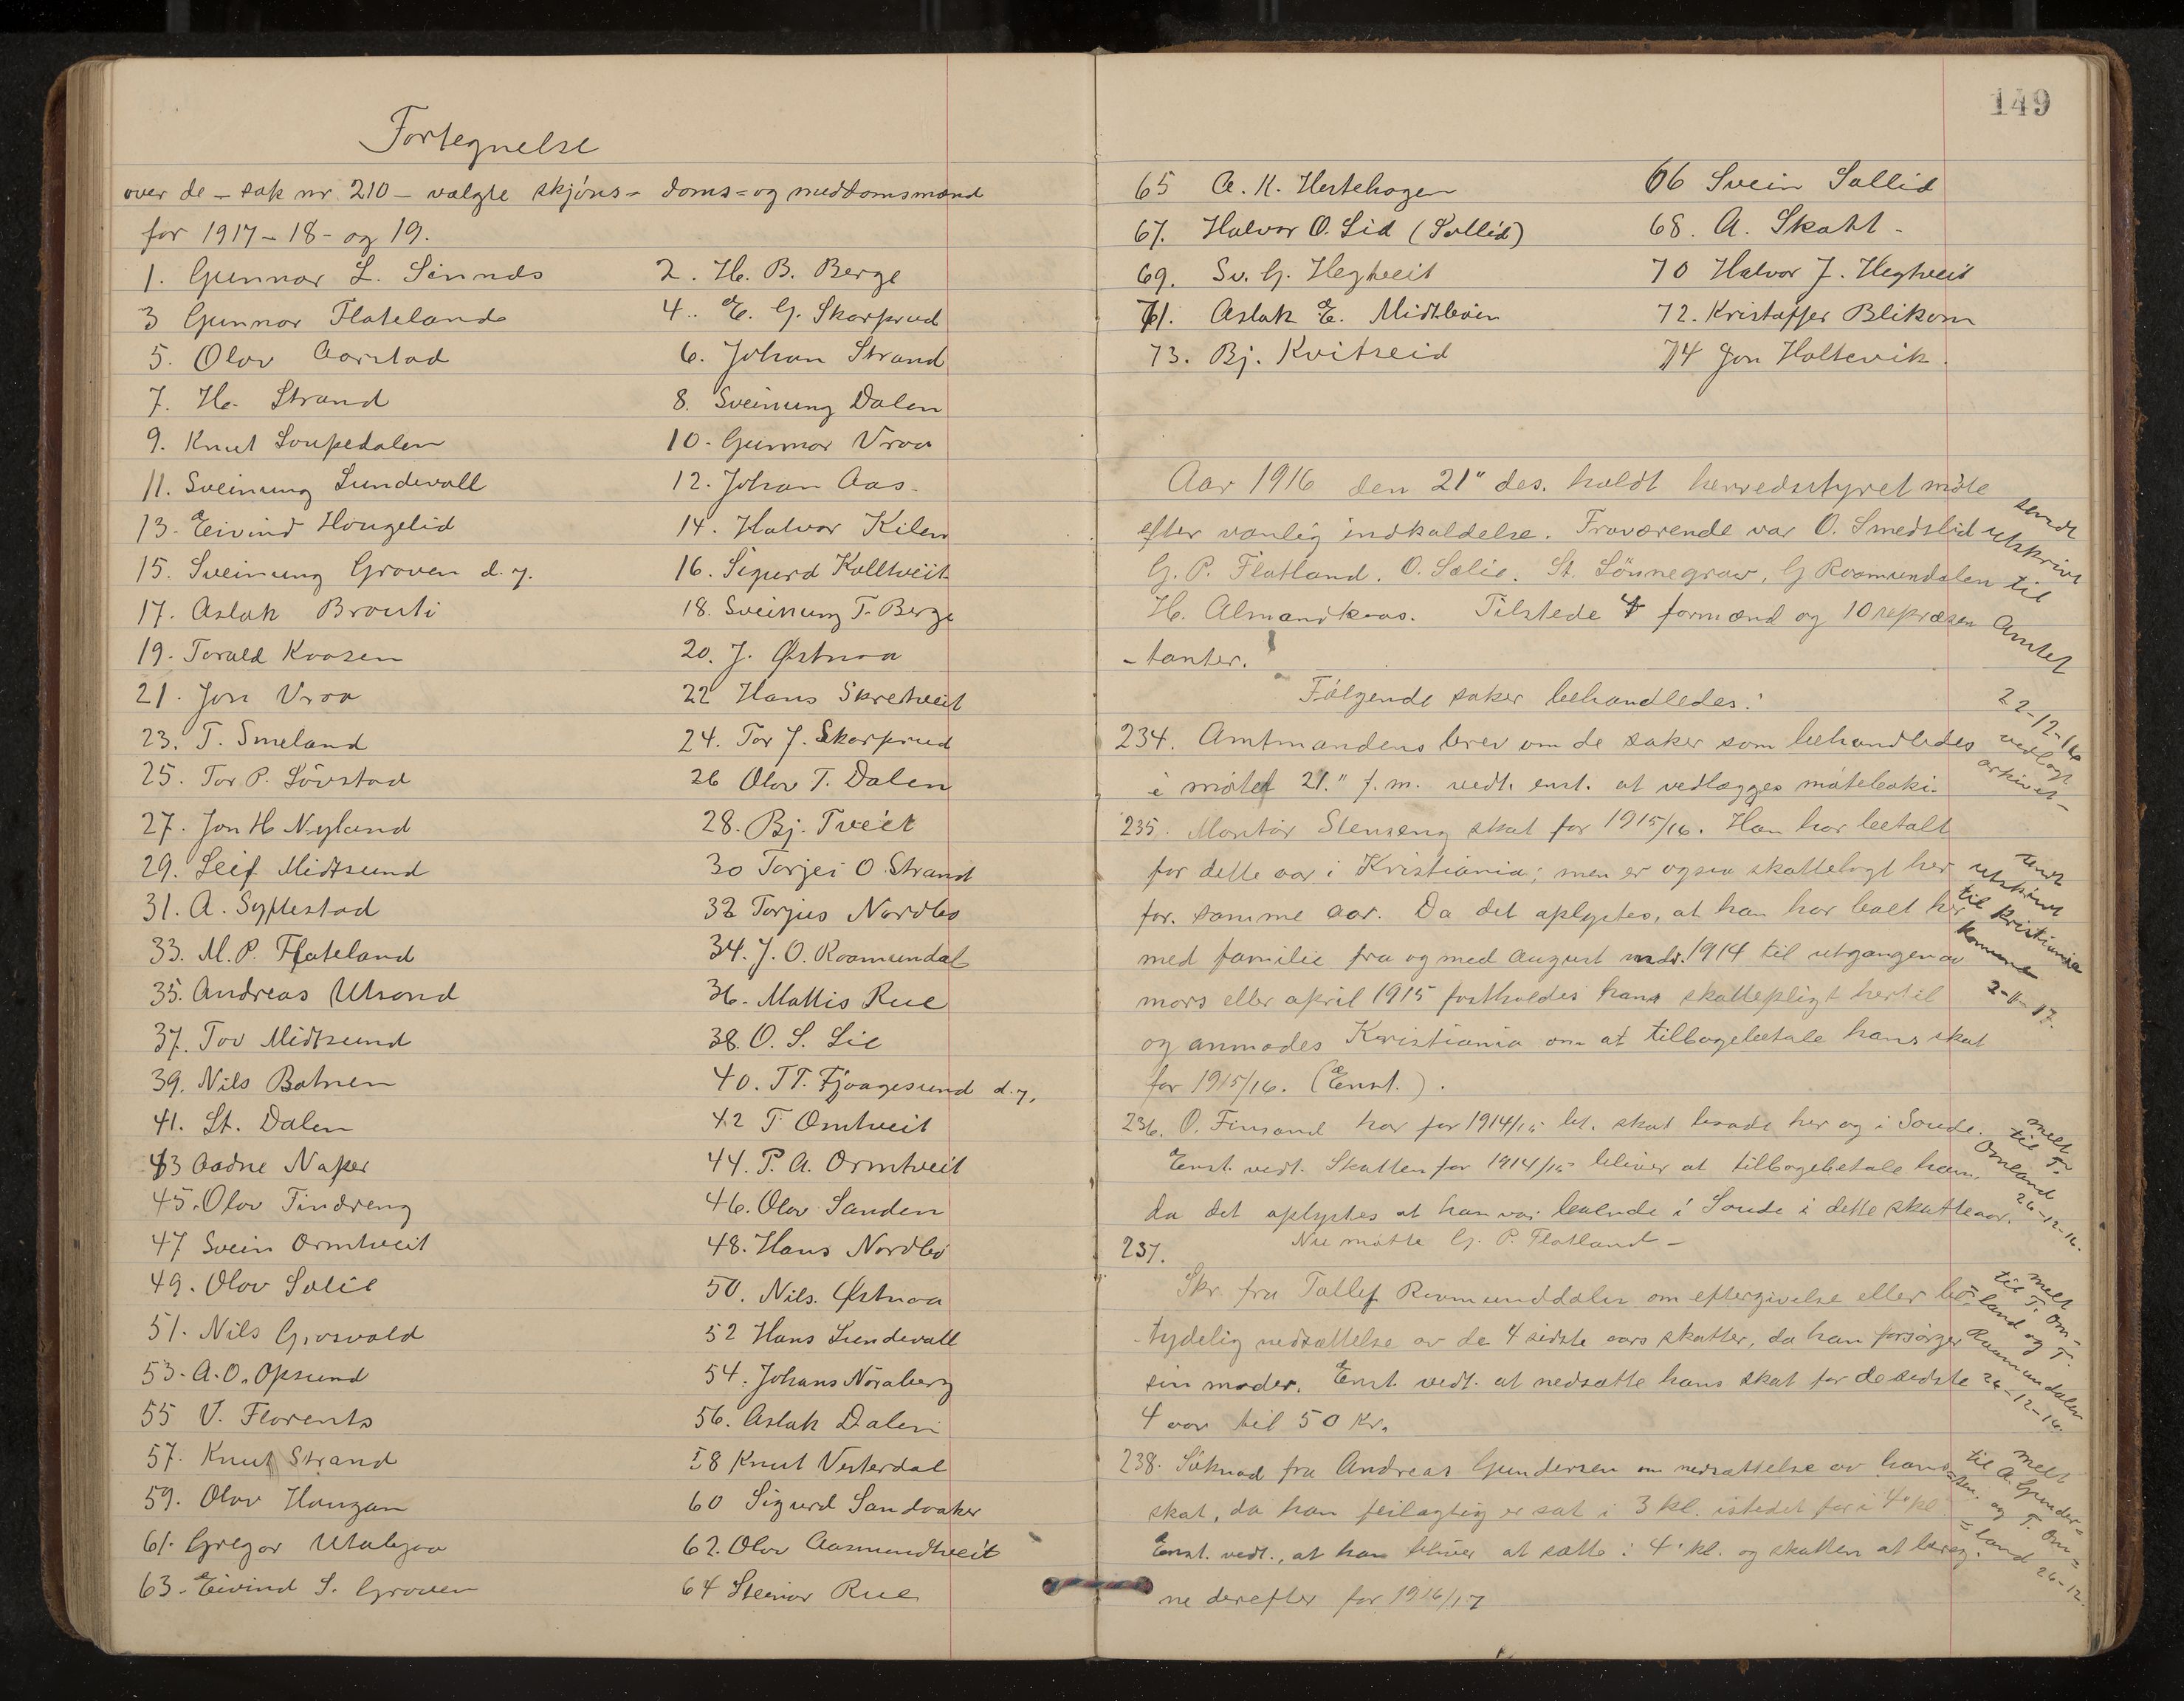 Fortegnelse
over de – sak nr. 210 – valgte skjöns- doms= og meddomsmænd
for 1917 – 18 – og 19.
1. Gunnar L. Sinnds
2. H. B. Berge
3 Gunnar Flateland
4. E. G. Skarprud
5. Olav Aarstad
6. Johan Strand
7. H. Strand
8. Sveinung Dalen
9. Knut Loupedalen
10. Gunnar Vraa
11. Sveinung Lundevall
12. Johan Aas
13. Eivind Hougelid
14. Halvor Kilen
15. Sveinung Groven d. y.
16. Sigurd Kolltveit
17. Aslak Brouti
18. Sveinung T. Berge
19. Torald Kaasen
20. J. Østnaa
21. Jon Vraa
22 Hans Skretveit
23. T. Smeland
24. Tor J. Skarprud
25. Tor P. Lövstad
26 Olav T. Dalen
27. Jon H Nyland
28. Bj. Tveit
29. Leif Midtsund
30 Torjei O. Strand
31. A. Syftestad
32 Torjus Nordbö
33. M. P. Flateland
34. J. O. Raamundal
35. Andreas Utsond
36. Mattis Rue
37. Tov Midtsund
38. O. S. Lie
39. Nils Botnen
40. T T. Fjaagesund d. y.
41. St. Dalen
42 T Omtveit
43 Aadne Naper
44. P. A. Ormtveit
45. Olav Tindreng
46. Olav Sanden
47 Svein Ormtveit
48. Hans Nordbö
49. Olav Solie
50. Nils Østnaa
51. Nils Grosvold
52 Hans Lundevall
53. A. O. Opsund
54. Johans Noraberg
55 V. Florents
56. Aslak Dalen
57. Knut Strand
58 Knut Vesterdal
59. Olav Haugan
60 Sigurd Sandvaker
61. Gregar Utabjaa
62. Olav Aasmundtveit
63. Eivind S. Groven
64 Steinar Rue
149
65 A. K. Hestehagen
66 Svein Sollid
67. Halvor O. Lid (Sollid)
68. A. Skatt
69. Sv. G. Hegtveit
70 Halvor J. Hegtveit
71. Aslak E. Midtböen
72. Kristoffer Blikom
73. Bj. Kvitseid
74 Jon Holtevik.
Aar 1916 den 21" des. holdt herredsstyret möte
efter vanlig indkaldelse. Fraværende var O. Smedslid
G. P. Flatland. O. Solie. St. Lönnegrav, G Raamundalen
H. Almandkaas. Tilstede 4 formænd og 10 repræsen
-tanter.
sendt
utskrivt
til
Amtet
22-12-16
Følgende saker behandledes:
234. Amtmandens brev om de saker som behandledes
i mötet 21." f. m. vedt. enst. at vedlægges möteboki.
vedlagt
arkivet –
235. Montör Stenseng skat for 1915/16. Han har betalt
for dette aar i Kristiania; men er ogsaa skattelagt her
for samme aar. Da det oplystes, at han har boet her
med familie fra og med August mdr. 1914 til utgangen av
mars eller april 1915 fastholdes hans skattepligt hertil
og anmodes Kristiania om at tilbagebetale hans skat
for 1915/16. (Enst.).
sendt
utskrivt
til Kristiania
kommune
2-11-17.
236. O. Finsand har for 1914/15 bet. skat baade her og i Soude.
Enst. vedt. Skatten for 1914/15 bliver at tilbagebetale ham,
da det oplystes at han var boende i Soude i dette skatteaar.
melt
til T.
Omland
26-12-16.
237. Nu mötte G. P. Flatland –
Skr. fra Tallef Raamunddalen om eftergivelse eller be-
-tydelig nedsættelse av de 4 sidste aars skatter, da han forsörger
sin moder. Enst. vedt. at nedsætte hans skat for de sidste
4 aar til 50 Kr.
melt
til T. Om-
land og T.
Raamundalen
26-12-16.
238. Söknad fra Andreas Gundersen om nedsættelse av hans
skat, da han feilagtig er sat i 3 kl. istedet for i 4' kl.
Enst. vedt., at han bliver at sætte i 4' kl. og skatten at bereg-
ne derefter for 1916/17
melt
til A. Gunder=
=sen. og T. Om=
=land 26-12.